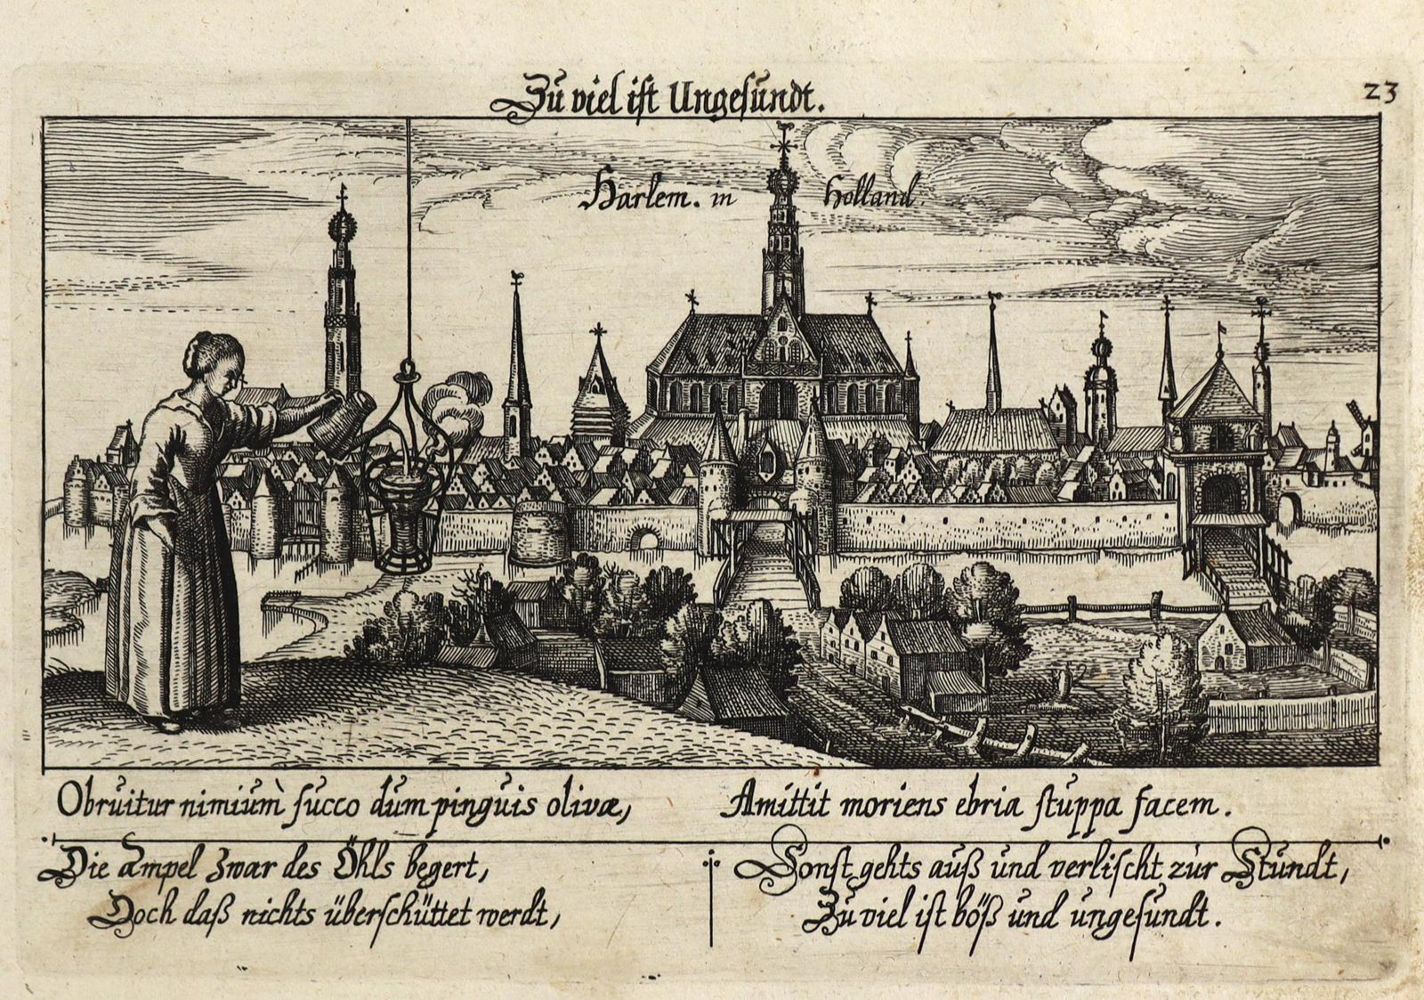 Zů viel ist Ungesůndt.
23
Harlem. in Holland.
Obrůitur nimiům̀ succo dům pingůis olivæ,
Amittit moriens ebria stůppa facem.
Die Ampel zwar des Öhls begert,
Doch daß nichts überschüttet werdt,
Sonst gehts auß ůnd verlischt zůr Stůndt,
Zů viel ist böß ůnd ůngesůndt.